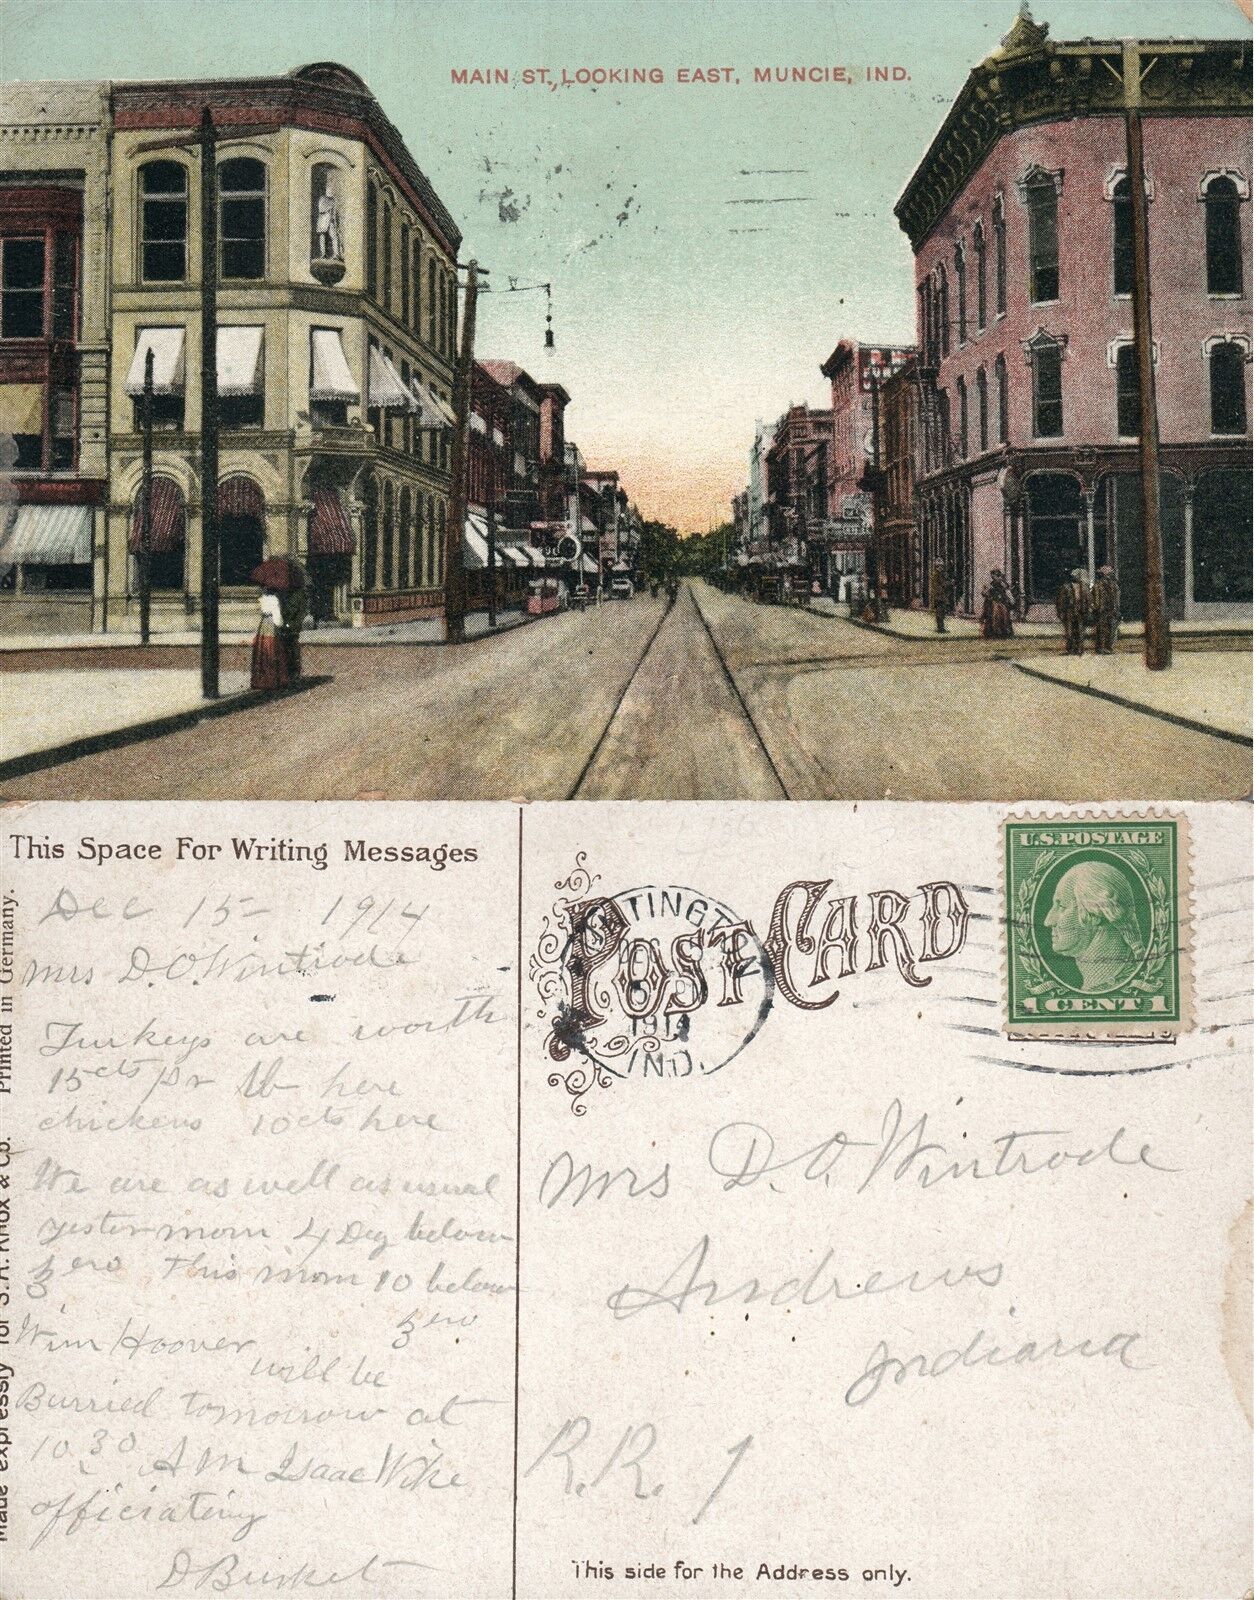 MAIN ST., LOOKING EAST, MUNCIE, IND.
This Space For Writing Messages
Dec 15 - 1914
Mrs D. O. Wintrode
Turkeys are worth
15cts pr lb here
chickens 10cts here
We are as well as usual
yester morn 4 Deg below
zero This morn 10 below
zero
Wm Hoover
will be
Burried tomorrow at
10.30 AM Isaac Wike
officiating
D Burket
Printed in Germany.
Made expressly for S. A. Knox & Co.
POST CARD
1914
IND.
U.S. POSTAGE
1 CENT 1
Mrs D. O. Wintrode
Andrews
Indiana
R. R. 1
This side for the Address only.